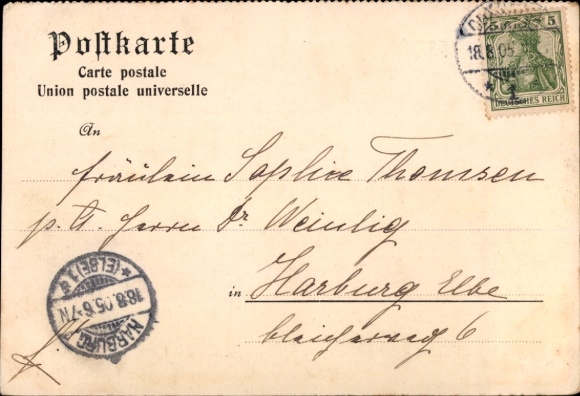 Postkarte
Carte postale
Union postale universelle
An
Fräulein Sophie Thomsen
p. A. Herrn Dr Weinlig
in Harburg Elbe
Bleicherweg 6
5 5
DEUTSCHES REICH
18.8.05
1
HARBURG
18.8.05.6-7N
(ELBE) 1